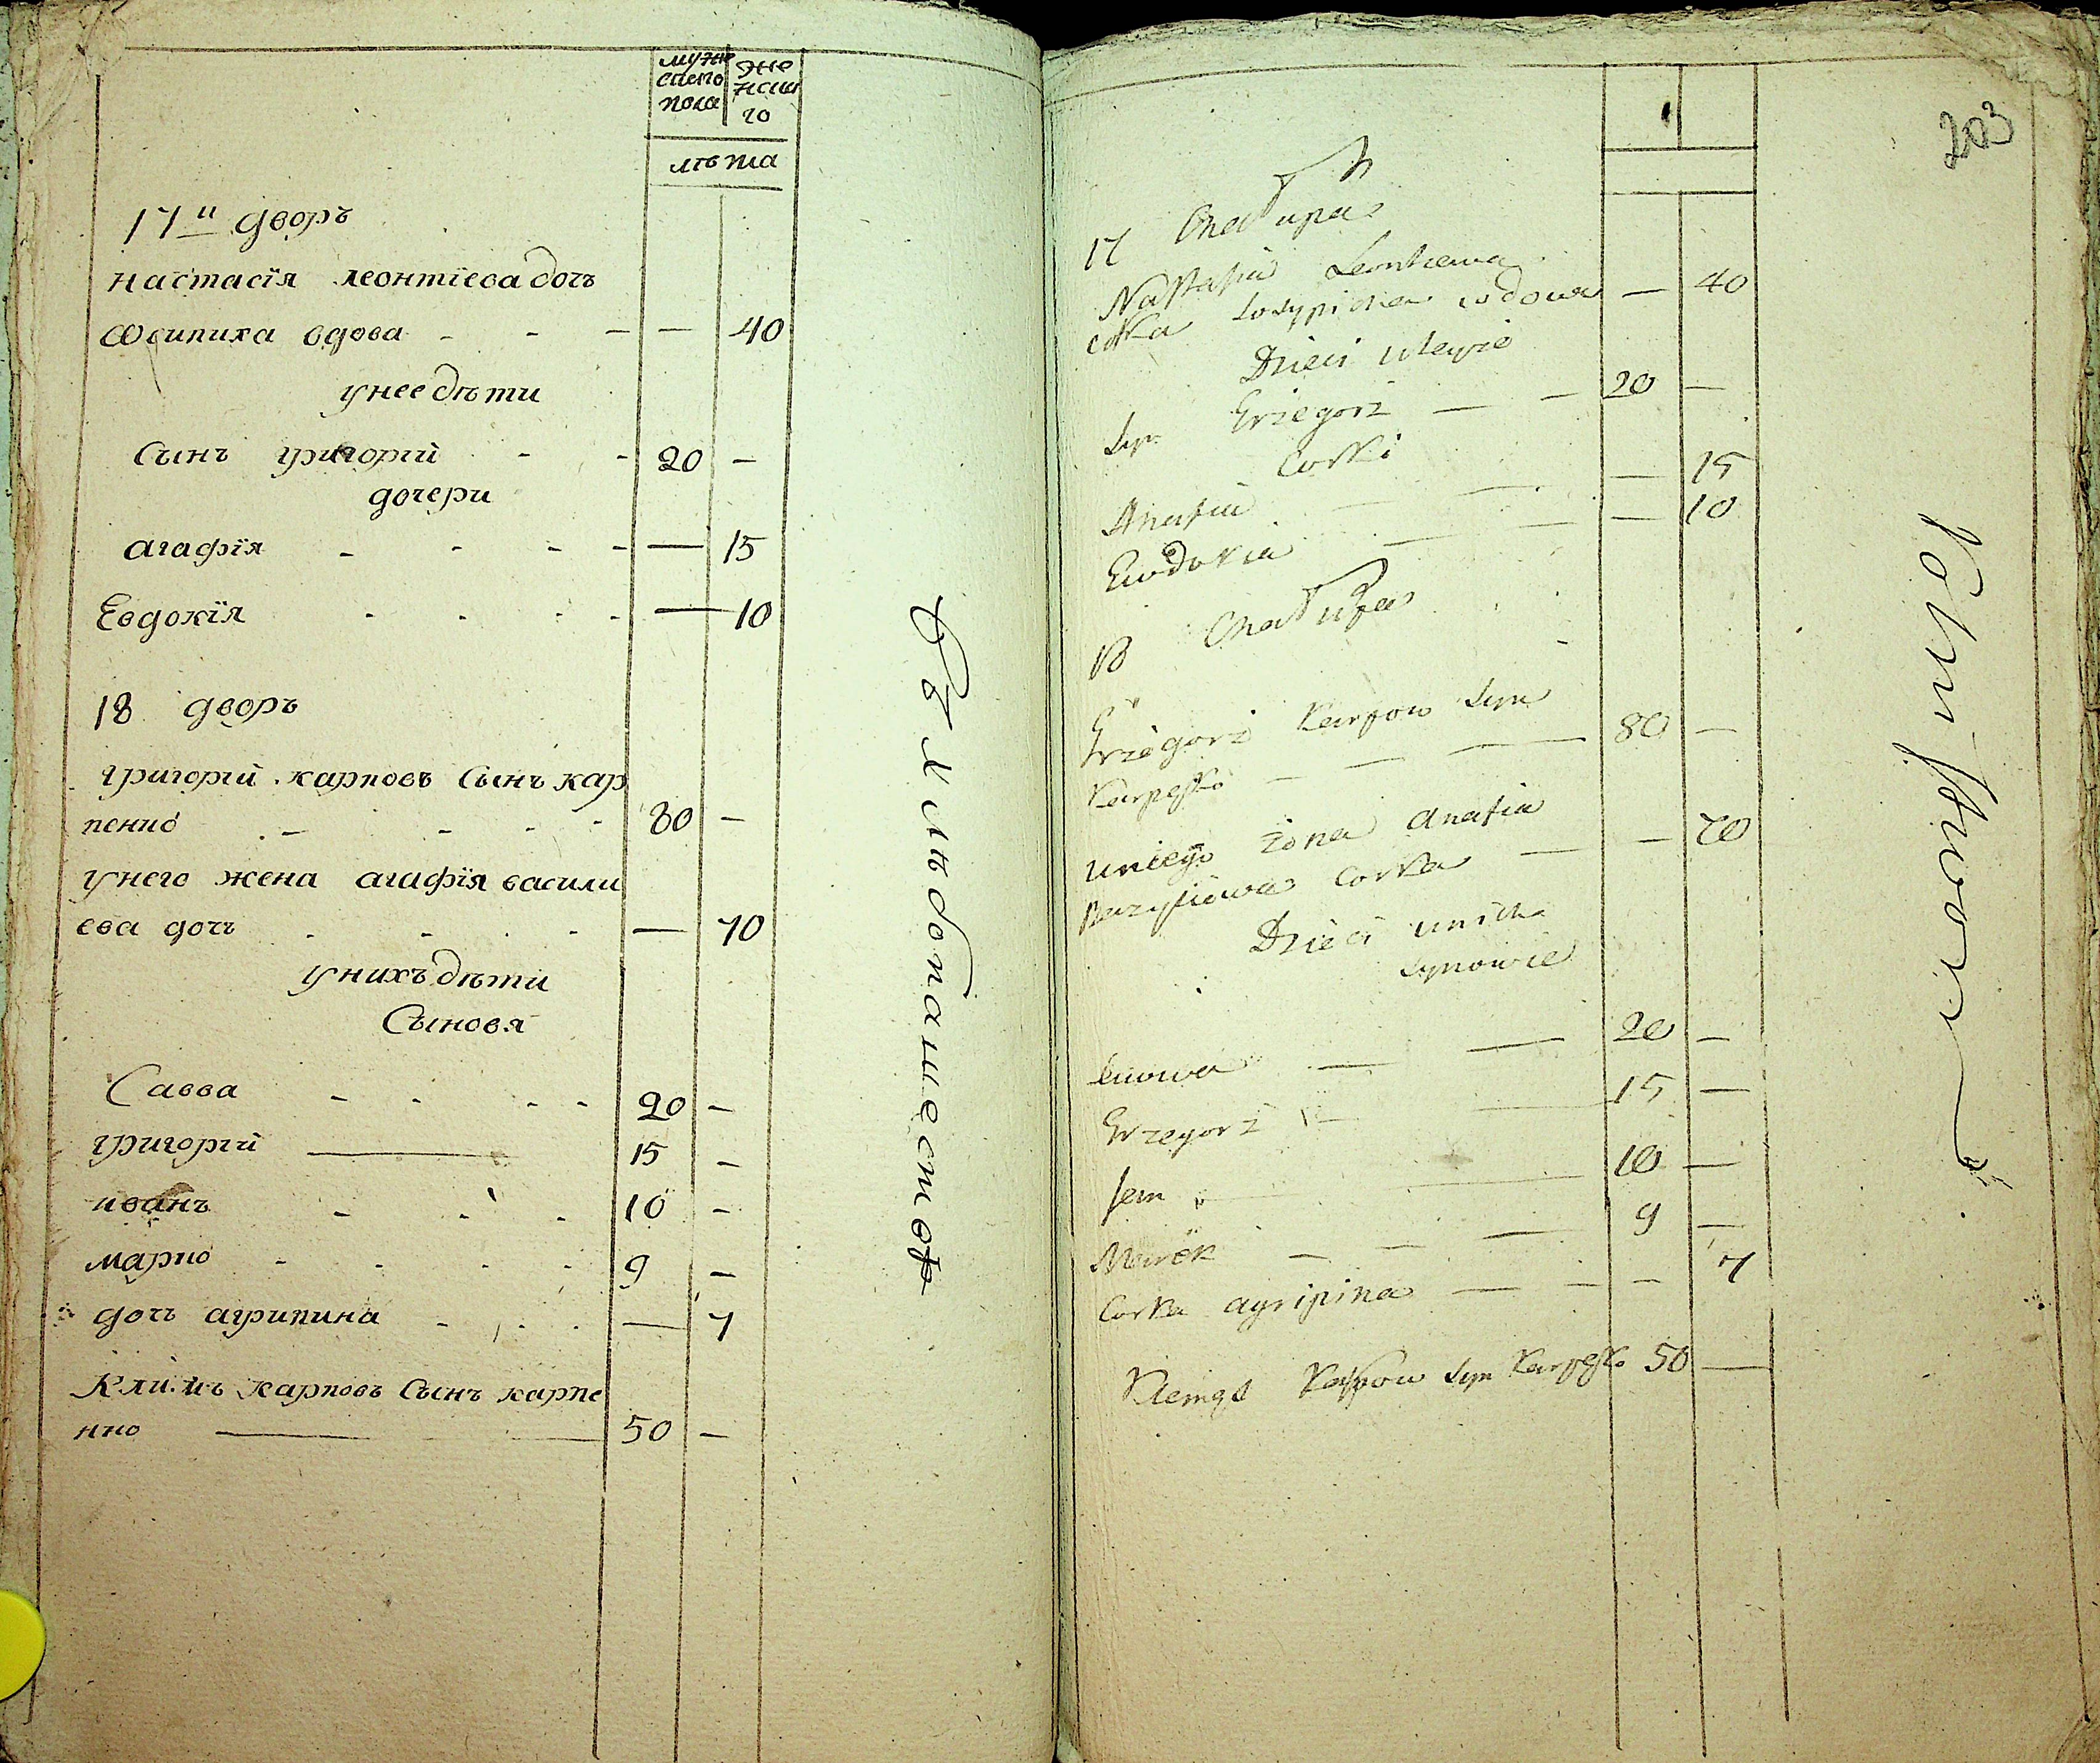 муже
ского
пола
же
нска
го
лѣта
17й дворъ
настасїя леонтїева дочъ
Осипиха вдова - - - — 40
у нее дѣти
Сынъ григорїй - - 20 -
дочери
агафїя - - - - — 15
Евдокїя - - - - — 10
18 дворъ
григорїй карповъ Сынъ кар
пенко - - - - 80 -
у него жена агафїя васили
ева дочъ - - - - — 70
у нихъ дѣти
Сыновя
Савва - - - - 20 -
григорїй — 15 -
иванъ - - - 10 -
марко - - - - 9 -
дочъ агрипина - - - — 7
Климъ карповъ Сынъ карпе
нко — 50 -
въ хлѣбопашествѣ
203
17 Chałupa
Nastasia Leontiewa
corka Josypicha wdowa — 40
Dzieci u teyże
Syn Grzegorz — - 20 —
Corki
Anafia — — — 15
Ewdokia — — — 10
18 Chałupa
Grzegorz Karpow Syn
Karpeńko — — — 80 —
u niego żona Anafia
Bazyliowa Corka — — 70
Dzieci u nich
synowie
Sawwa — — 20 —
Grzegorz — — 15 —
Jan — 10 —
Marek — — — 9 —
Corka agripina — — — 7
Klemęs Karpow Syn Karpeńko 50 —